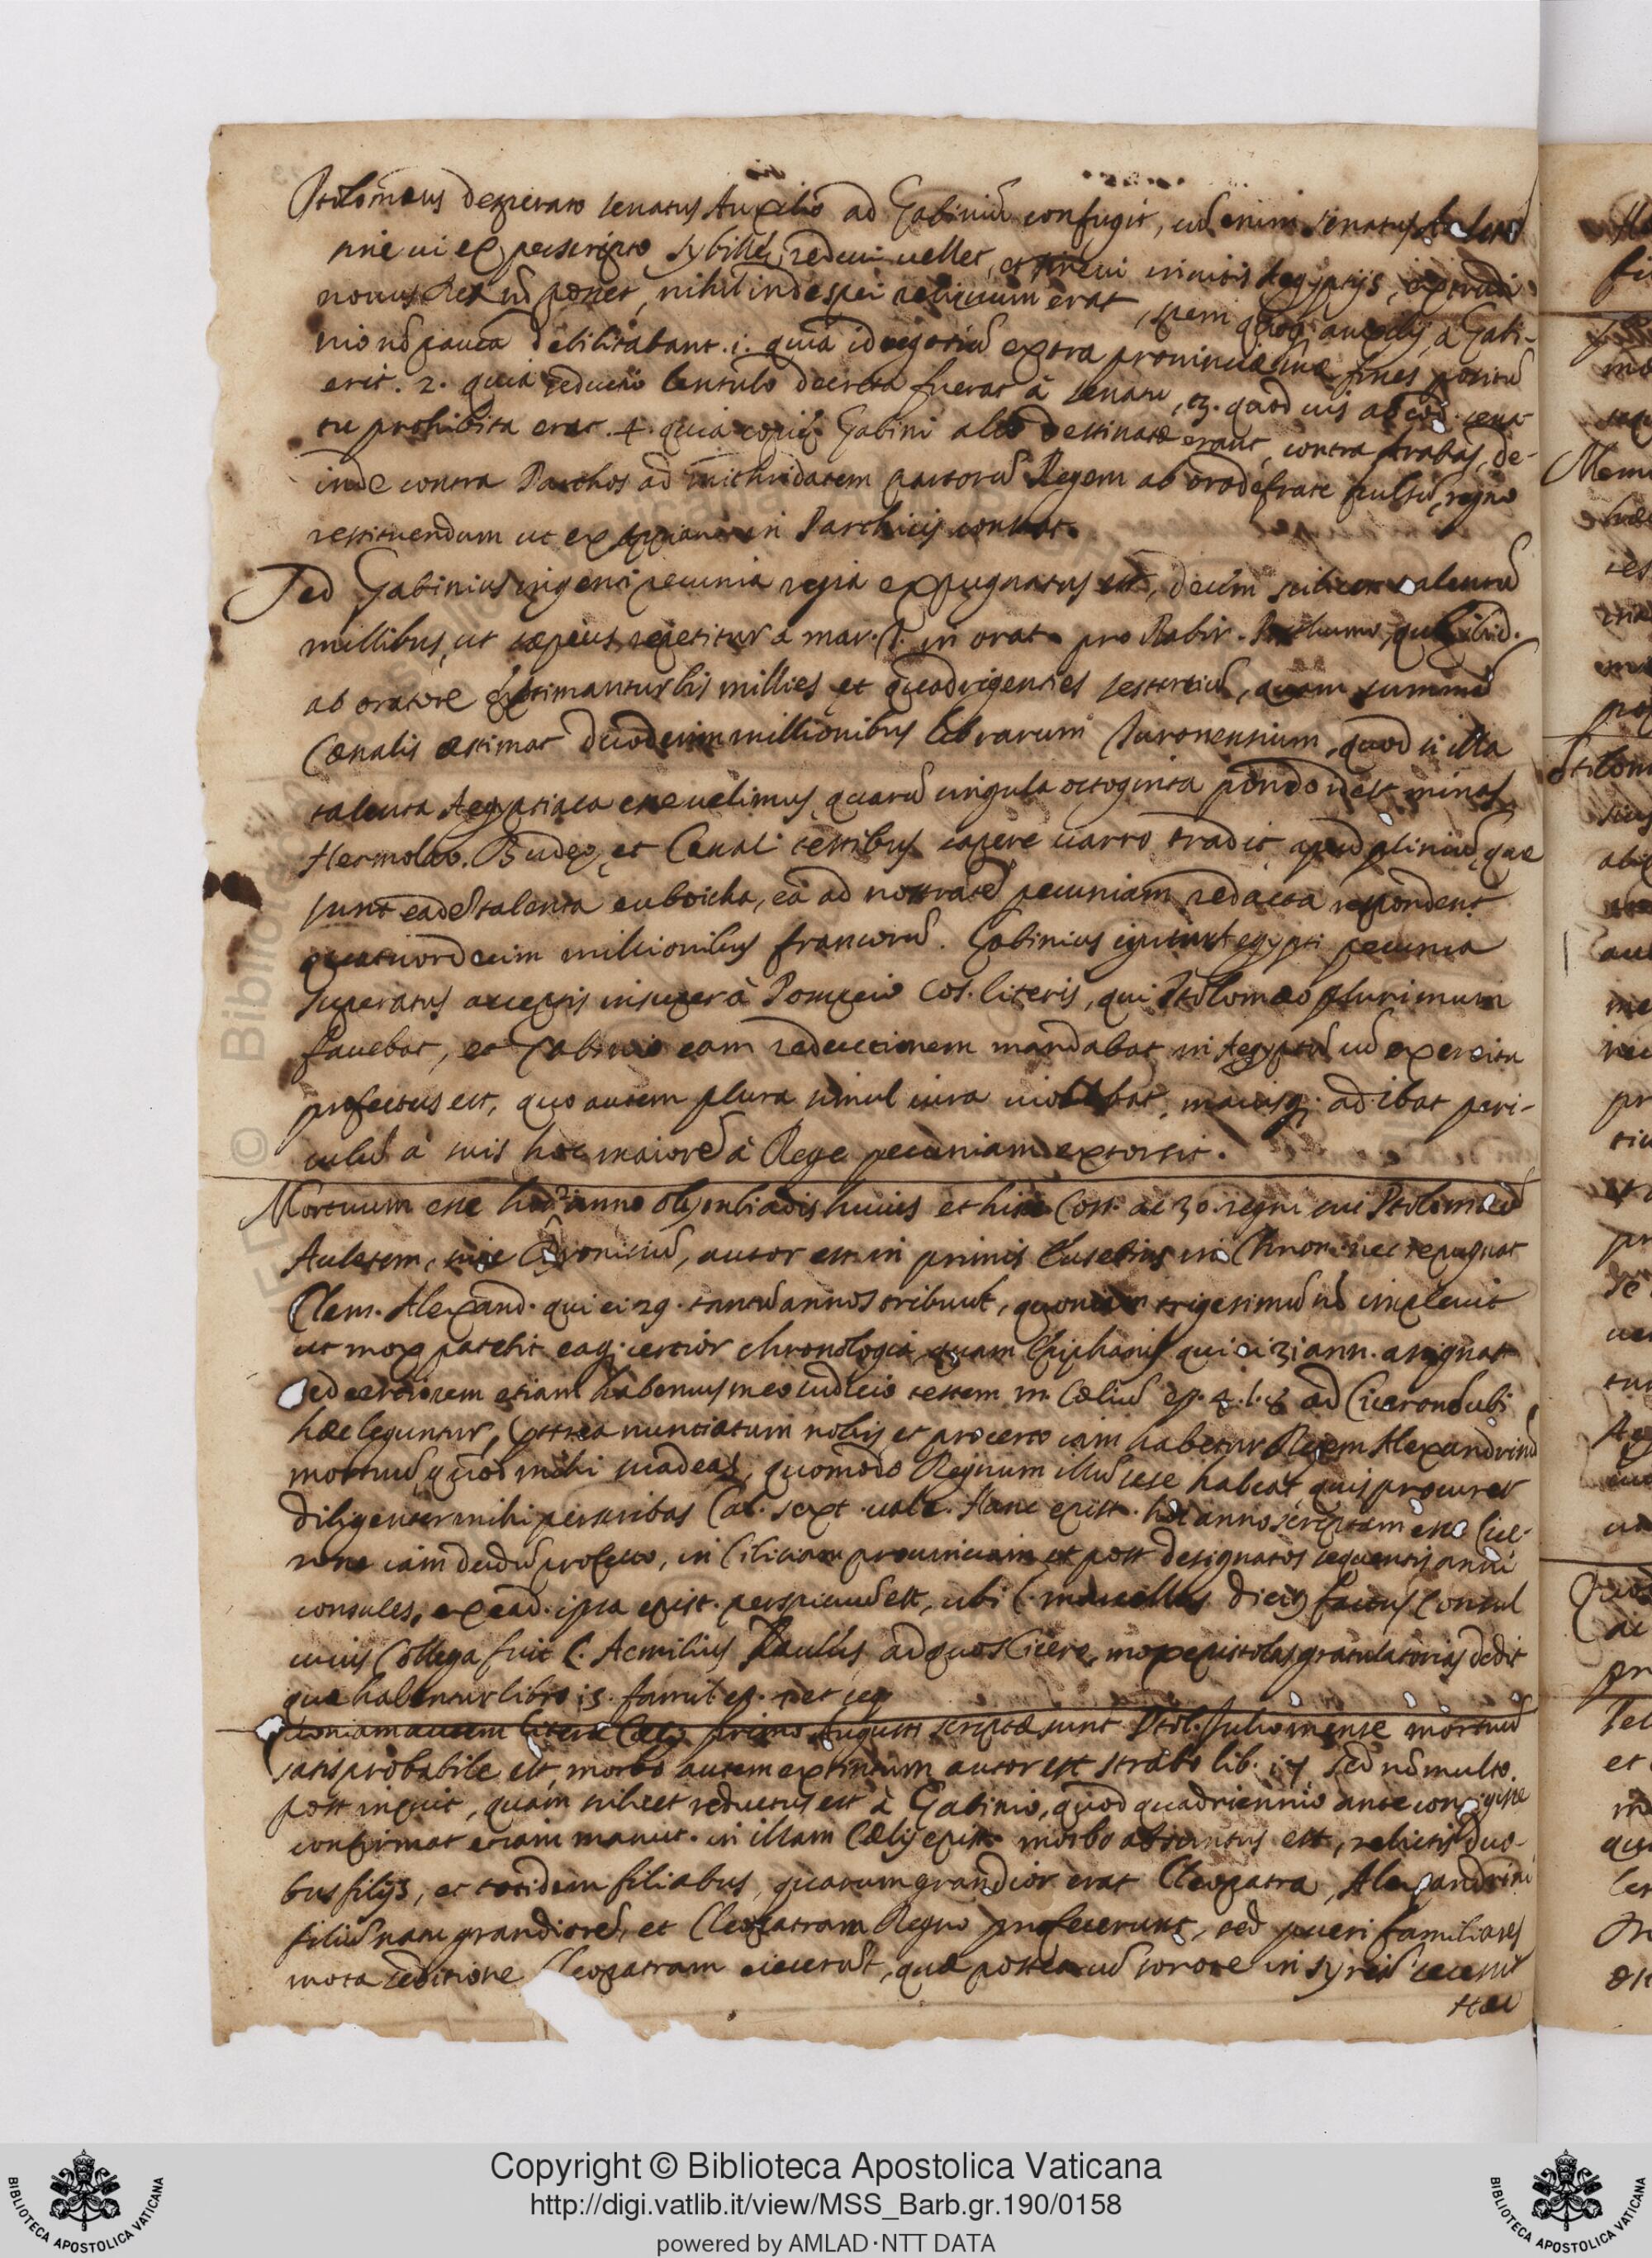 Ptolomæus desperato senatus Auxilio ad Gabiniū confugit, cū enim senatus
sine ui ex perscripto Sybillę reduci uellet, et sine ui inuitis Aegyptijs,
nouus Rex nō posset, nihil inde spei reliquum erat, spem quoq; auxilij à Gabi-
nio nō pauca debilitabant. 1. quia id negotiū extra prouinciæ suæ fines positū
erit. 2. quia reductio Lentulo decreta fuerat à senatu, 3. quod uis ab eod. sena-
tu prohibita erat. 4. quia copię Gabini alio destinatæ erant, contra Arabas, de-
inde contra Parthos ad Mithridatem partorū Regem ab orode fratre pulsū, regno
restituendum ut ex Appiano in Parthicis constat.
Sed Gabinius ingenti pecunia regia expugnatus est, decem scilicet talentū
millibus, ut sæpius repetitur a mar. T. in orat. pro Rabir. Posthumo, quę ibid.
ab oratore æstimantur bis millies et quadrigenties sestertiū, quam summā
Cænalis æstimat duodecim millionibus librarum Turonensium, quod si illa
talenta Aegyptiaca esse uelimus, quarū singula octoginta pondo idest minas
Hermolao. Budęo, et Cenali testibus capere uarro tradit apud pliniū, quæ
sunt eadē talenta euboicha, ea ad nostratē pecuniam redacta respondent
quatuordecim millionibus francorū. Gabinius igitur tegypti pecunia
superatus acceptis insuper à Pompeio Cos. literis, qui Ptolomæo plurimum
fauebat, et Gabinio eam reductionem mandabat in Aegyptū cū exercitu
profectus est, quo autem plura simul iura uiolabat, maiusq; adibat peri-
culū à suis hoc maiorē à Rege pecuniam extorsit.
Mortuum esse hoc anno olympiadis huius et hisce Coss. ac 30. regni sui Ptolomæū
Auletem, siue Dyonisiū, autor est in primis Eusebius in Chron. nec repugnat
Clem. Alexand. qui ei 29. tantū annos tribuit, quoniam trigesimū nō impleuit
ut mox patebit eaq; certior chronologia quam Epiphanij qui ei 31 ann. assignat
sed certiorem etiam habemus meo iudicio testem m. Cæliū ep. 4. l. 8. ad Ciceronē ubi
hæc leguntur, postea nunciatum nobis et pro certo iam habetur Regem Alexandrinū
mortuū, quod mihi suadeas, quomodo Regnum illud sese habeat, quis procuret
diligenter mihi perscribas Cal. sext. uale. Hanc epist. hoc anno scriptam esse Cice-
rone iam dudū profecto, in Ciliciam prouinciam et post designatos sequentis anni
consules, ex ead. ipsa epist. perspicuū est, ubi C. marcellus dicit. factus Consul
cuius Collega fuit L. Aemilius Paullus ad quos Cicero, mox epistolas gratulatorias dedit
quæ habentur libro 15. famil. ep. 7. et seq.
Quoniam autem literæ Cælij primo Augusti scriptæ sunt Ptol. Julio mense mortuū
satis probabile est, morbo autem extinctum autor est Strabo lib. 17 sed nō multo
post inquit, quam scilicet reductus est à Gabinio, quod quadriennio ante contigisse
confirmat etiam manut. in illam Cælij epist. morbo absumptus est, relictis duo-
bus filijs, et totidem filiabus, quarum grandior erat Cleopatra, Alexandrini
filiū natu grandiorē, et Cleopatram Regno præfecerunt, sed pueri familiares
mota seditione Cleopatram eiecerūt, quæ postea cū sorore in Syriā secessit
Hæc
Copyright © Biblioteca Apostolica Vaticana
http://digi.vatlib.it/view/MSS_Barb.gr.190/0158
powered by AMLAD·NTT DATA
BIBLIOTECA APOSTOLICA VATICANA
BIBLIOTECA APOSTOLICA VATICANA